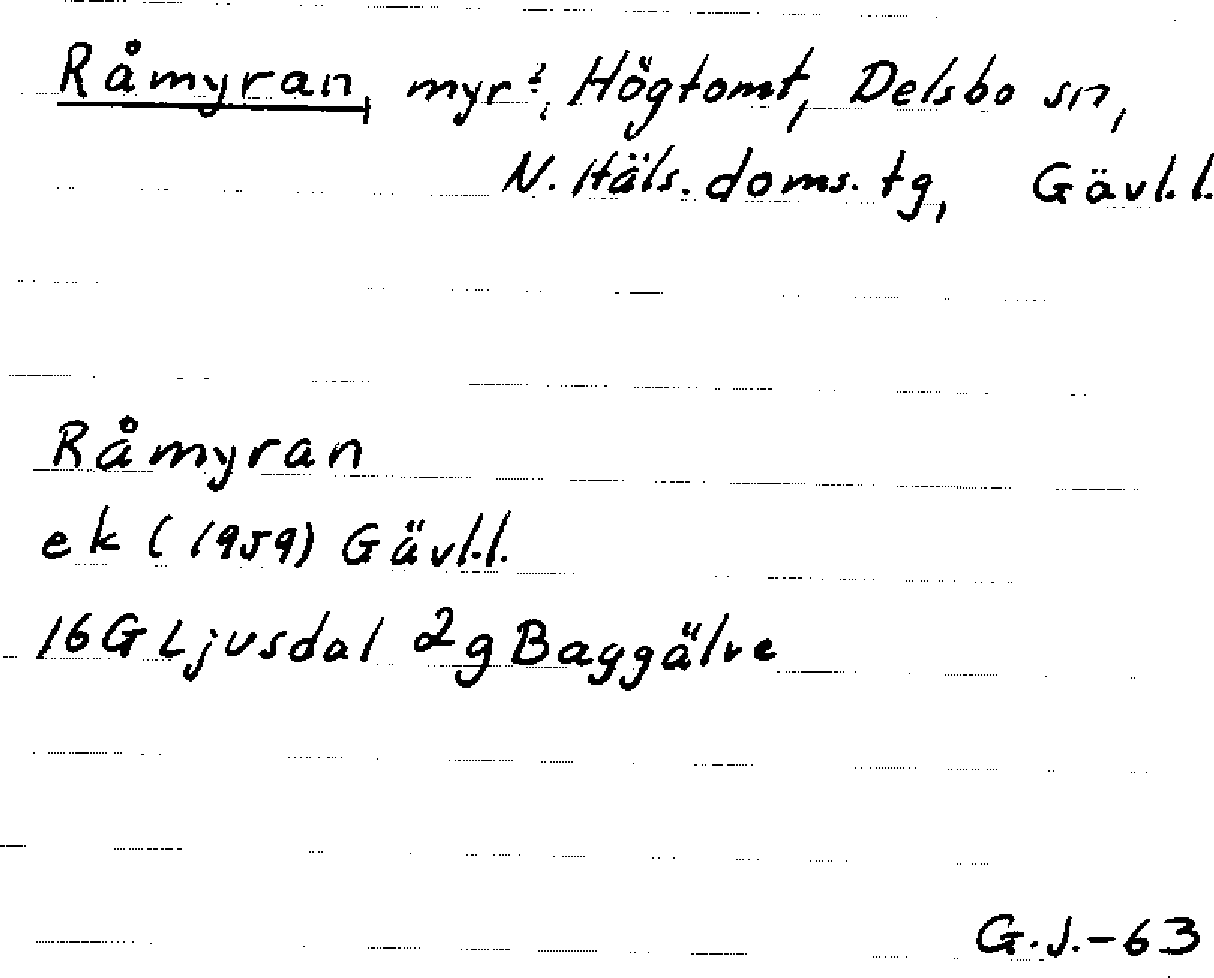 Råmyran, myr?, Högtomt, Delsbo sn,
N. Häls. doms. tg, Gävl.l.
Råmyran
ek (1959) Gävl.l.
16G Ljusdal 2g Baggälve
G.J.-63